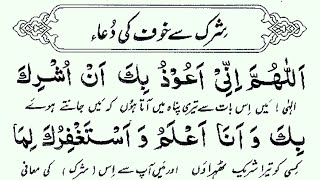 شرک سے خوف کی دُعاء
اَللّٰهُمَّ اِنِّیْٓ اَعُوْذُ بِكَ اَنْ اُشْرِكَ
الٰہی! میں اِس بات سے تیری پناہ میں آتا ہوں کہ میں جانتے ہوئے
بِكَ وَ اَنَا اَعْلَمُ وَ اَسْتَغْفِرُكَ لِمَا
کسی کو تیرا شریک ٹھہراؤں اور میں آپ سے اِس (شرک) کی معافی